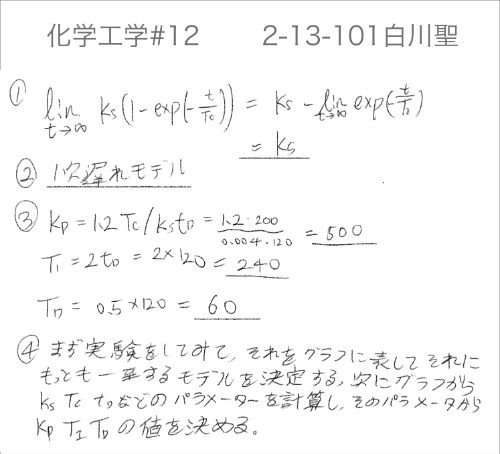 化学工学#12 2-13-101白川聖
① lim t→∞ Ks(1-exp(-t/Tc)) = Ks - lim t→∞ exp(t/Tc)
= Ks
② 1次遅れモデル
③ Kp = 1.2 Tc/KstD = 1.2・200/0.004・120 = 500
TI = 2tD = 2×120 = 240
TD = 0.5×120 = 60
④ まず実験をしてみて、それをグラフに表してそれに
もっとも一致するモデルを決定する、次にグラフから
Ks Tc tDなどのパラメーターを計算し、そのパラメータから
Kp TI TDの値を決める。